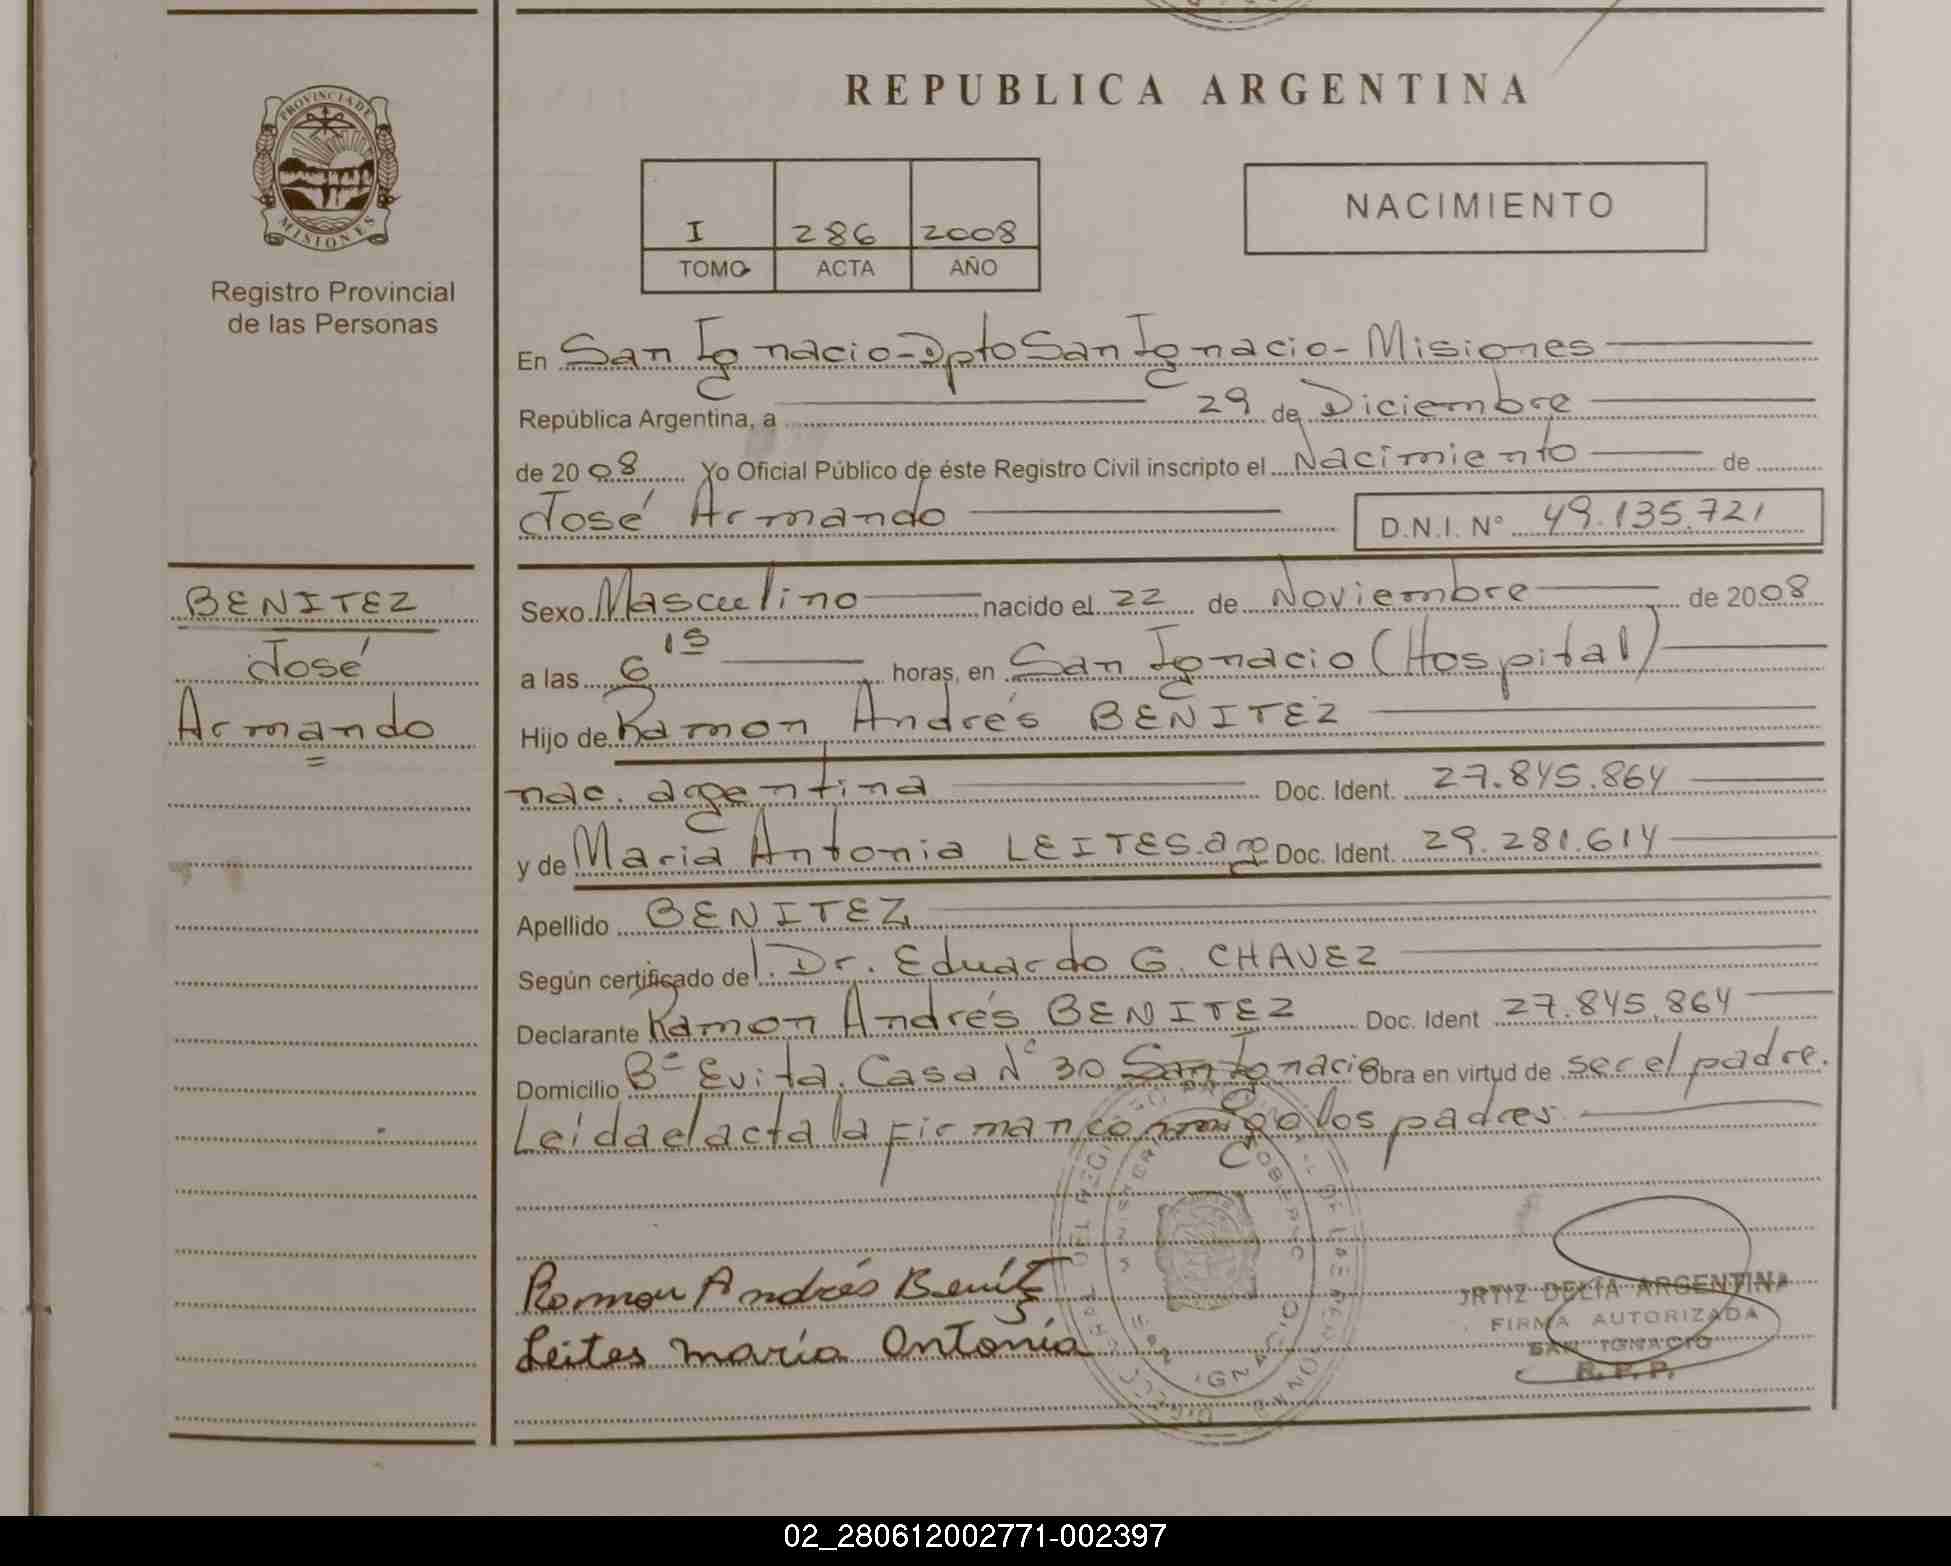 REPUBLICA ARGENTINA
PROVINCIA DE
MISIONES
Registro Provincial
de las Personas
I 286 2008
TOMO ACTA AÑO
NACIMIENTO
En San Ignacio - Dpto San Ignacio - Misiones
República Argentina, a 29 de Diciembre
de 2008 Yo Oficial Público de éste Registro Civil inscripto el Nacimiento de
José Armando D.N.I. N° 49.135.721
BENITEZ
José
Armando
Sexo Masculino nacido el 22 de Noviembre de 2008
a las 6 15 horas, en San Ignacio (Hospital)
Hijo de Ramon Andrés BENITEZ
nac. argentina Doc. Ident. 27.845.864
y de Maria Antonia LEITES. arg Doc. Ident. 29.281.614
Apellido BENITEZ
Según certificado del. Dr. Eduardo G. CHAVEZ
Declarante Ramon Andrés BENITEZ Doc. Ident 27.845.864
Domicilio B° Evita. Casa N° 30 San Ignacio Obra en virtud de ser el padre.
Leida el acta la firman conmigo los padres
Ramon Andrés Benítez
Leites maría Antonía
ORTIZ DELIA ARGENTINA
FIRMA AUTORIZADA
SAN IGNACIO
R. P. P.
02_280612002771-002397